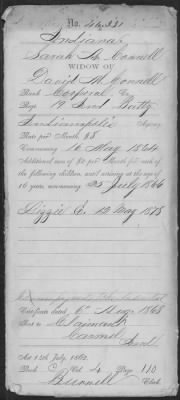 No. 46,331
Indiana
Sarah A. Connell
WIDOW OF
David M. Connell
Rank Corporal, Co.
Regt. 19 Ind Batty
Indianapolis Agency
Rate per Month, $8
Commencing 16 May 1864
Additional sum of $2 per Month for each of
the following children, until arriving at the age of
16 years, commencing 25 July 1866
Lizzie E. 12 May 1878
Certificate dated 6" Aug 1868
Sent to
Carmel
Ind
Act 14th July, 1862.
Book C Vol. 4 Page 110
Clerk.